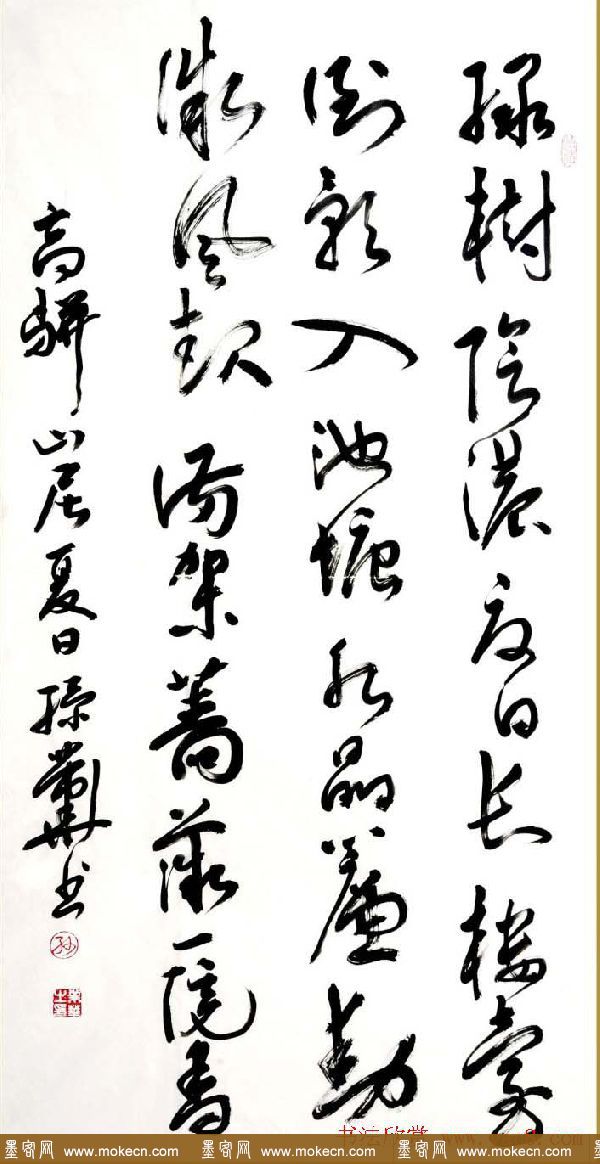 綠樹陰濃夏日长樓臺
倒影入池塘水晶簾動
微風起滿架薔薇一院香
高駢山居夏日孫书
书法欣赏 www.
墨客网 www.mokecn.com 墨客网 www.mokecn.com 墨客网 www.mokecn.com